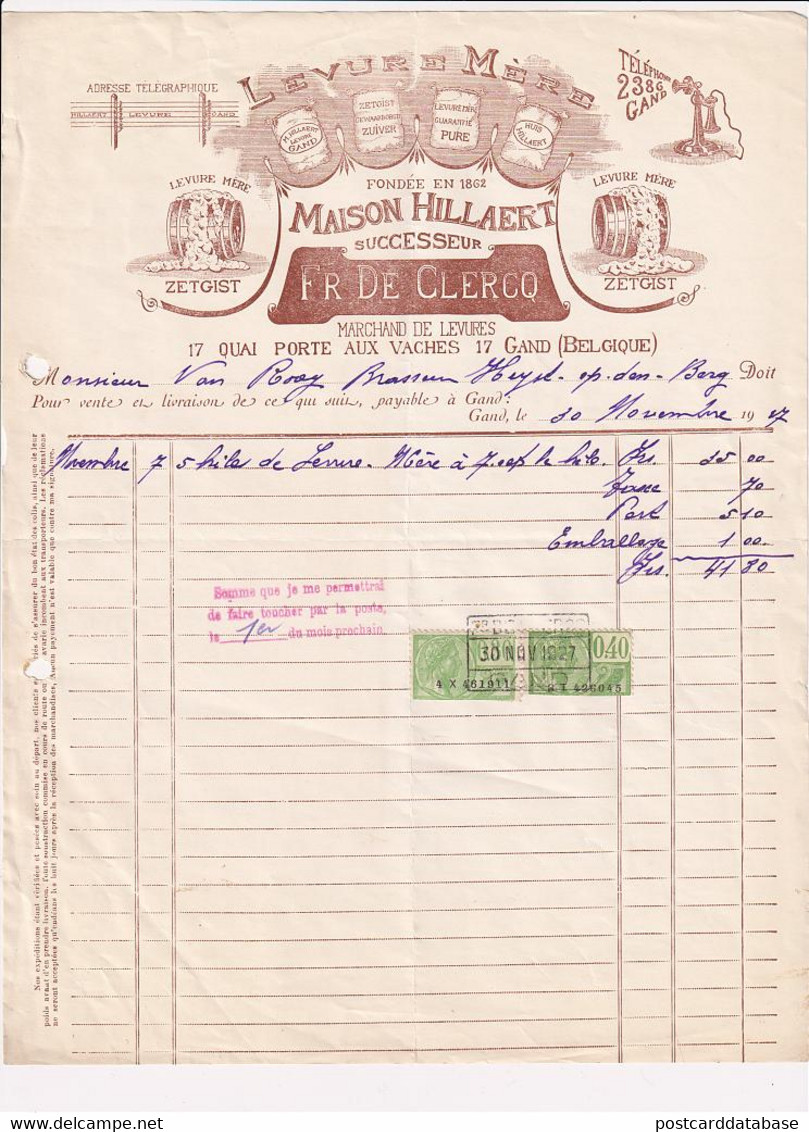 LEVURE MÈRE
ADRESSE TÉLÉGRAPHIQUE
HILLAERT LEVURE GAND
TÉLÉPHONE
2386
GAND
M. HILLAERT
LEVURE
GAND
ZETGIST
GEWAARBORGD
ZUIVER
LEVURE MÈRE
GUARANTIE
PURE
HUIS
HILLAERT
LEVURE MÈRE
ZETGIST
LEVURE MÈRE
ZETGIST
FONDÉE EN 1862
MAISON HILLAERT
SUCCESSEUR
FR DE CLERCQ
MARCHAND DE LEVURES
17 QUAI PORTE AUX VACHES 17 GAND (BELGIQUE)
Monsieur Van Rooy Brasseur Heyst-op-den-Berg Doit
Pour vente et livraison de ce qui suit, payable à Gand:
Gand, le 30 Novembre 1927
Novembre 7 5 kilos de Levure-Mère à 7.00 le kilo. Frs. 35 00
Taxe 70
Port 5 10
Emballage 1 00
Frs. 41 80
Somme que je me permettrai
de faire toucher par la poste,
le 1er du mois prochain.
30 NOV 1927
0,40
4 X 461911
8 I 426045
Nos expéditions étant vérifiées et pesées avec soin au départ, nos clients
poids avant d'en prendre livraison. Toute soustraction commise en cours de route ou avarie incombent aux transporteurs. Les réclamations
ne seront acceptées qu'endéans les huit jours après la réception des marchandises. Aucun payement n'est valable que contre ma signature.
de s'assurer du bon état des colis, ainsi que de leur
postcarddatabase